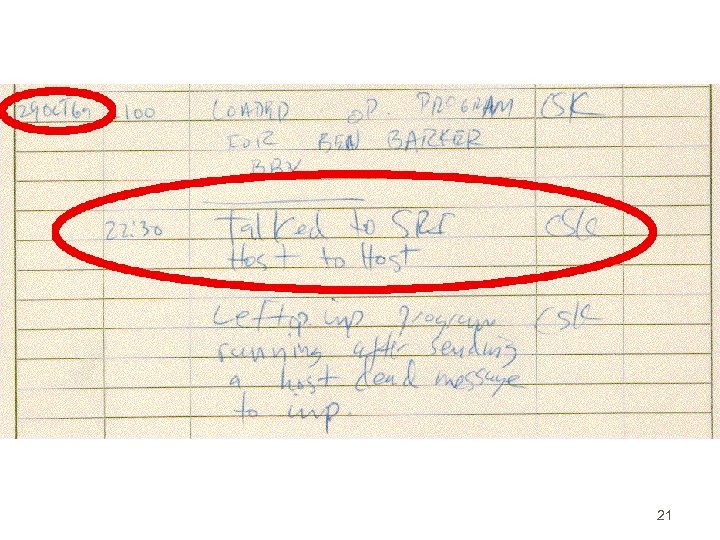 29OCT69 2100 LOADED OP. PROGRAM CSK
FOR BEN BARKER
BBN
22:30 Talked to SRI CSK
Host to Host
Left op imp program CSK
running after sending
a host dead message
to imp.
21